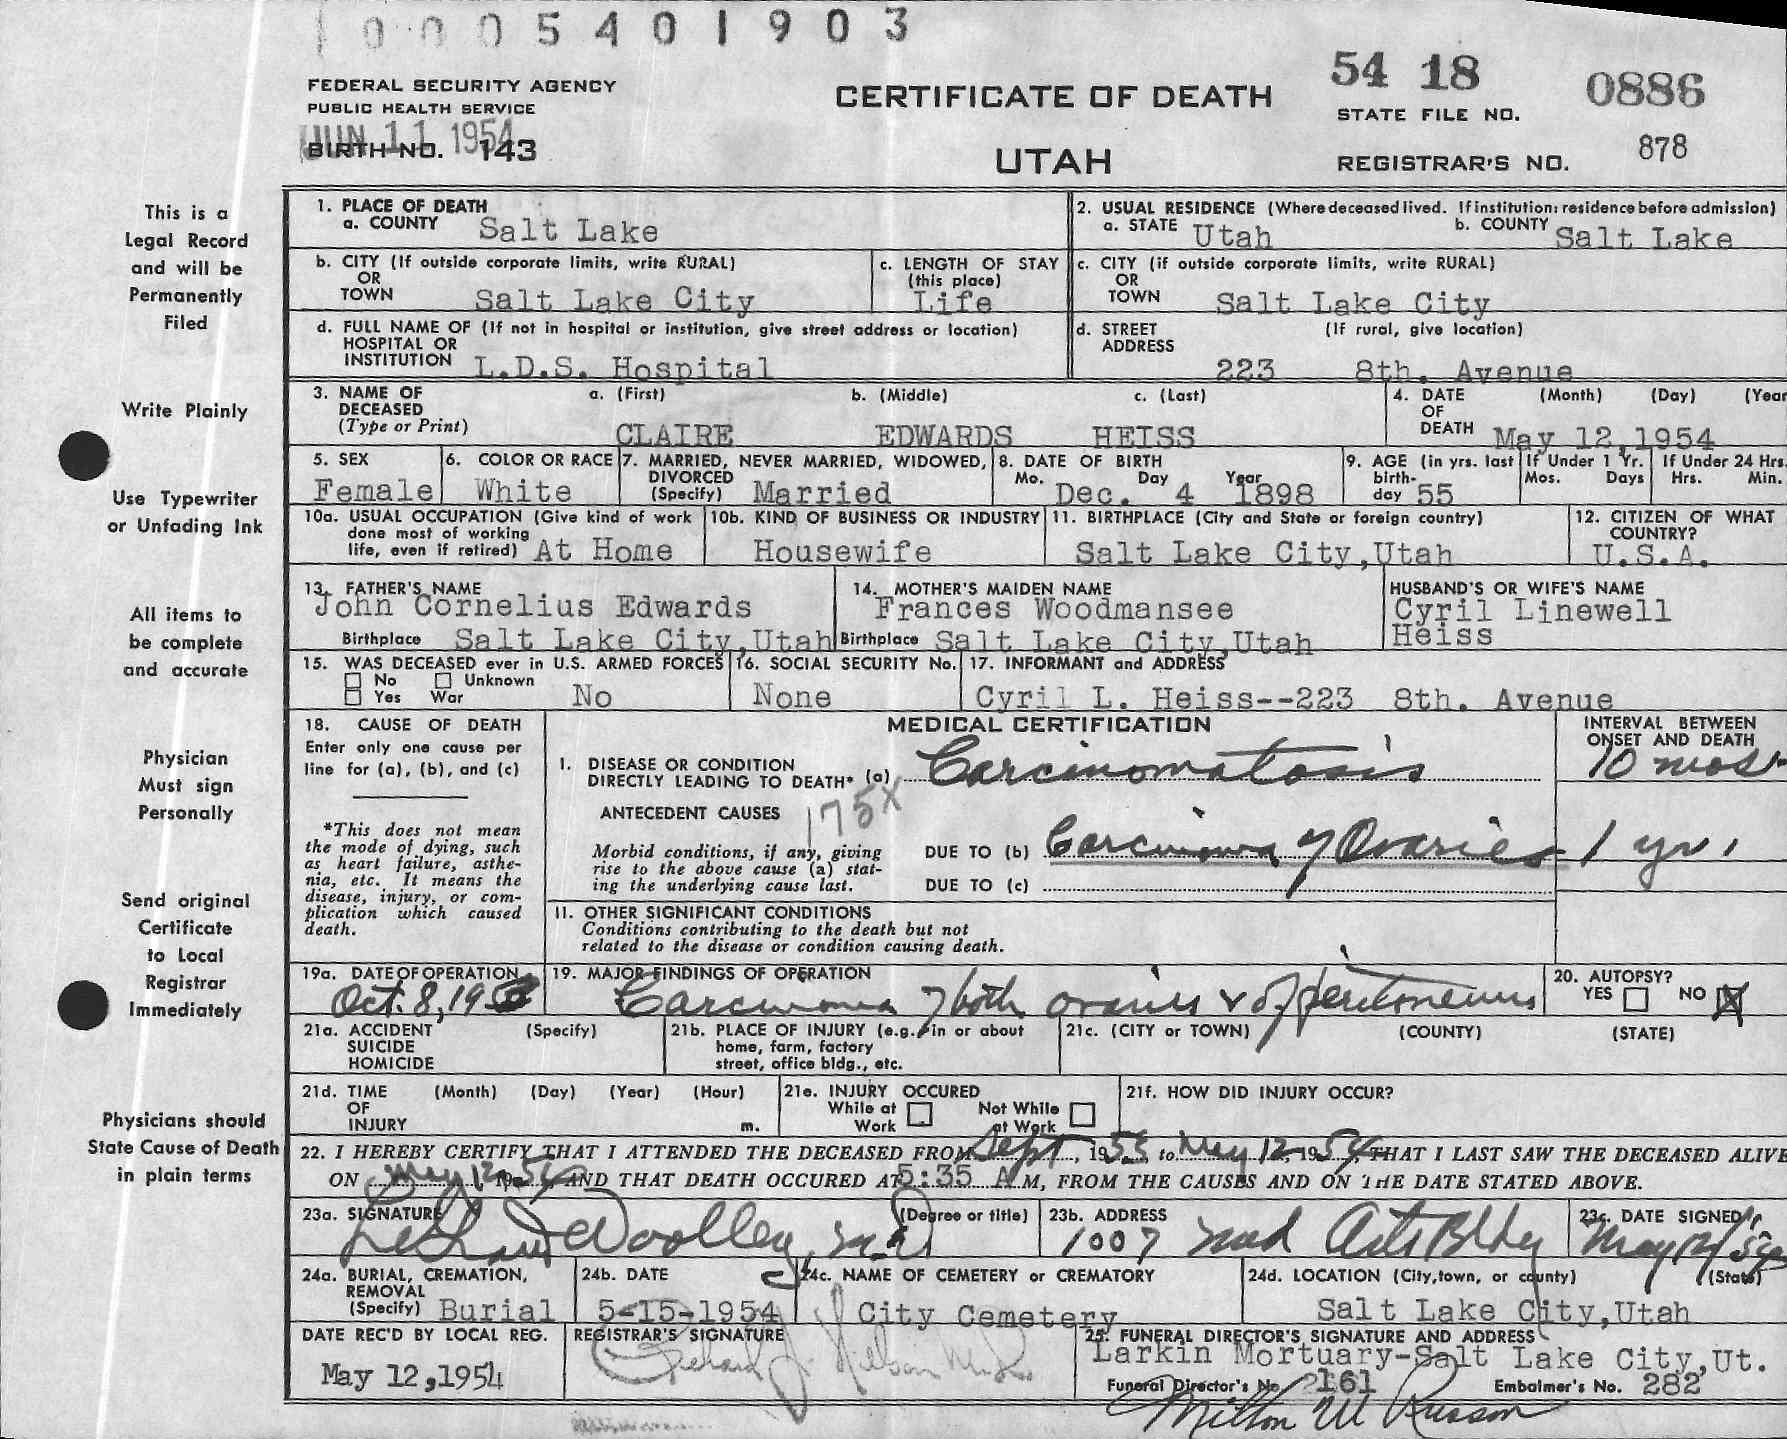 1 0 0 0 5 4 0 1 9 0 3
FEDERAL SECURITY AGENCY
PUBLIC HEALTH SERVICE
JUN 11 1954
BIRTH NO. 143
CERTIFICATE OF DEATH
UTAH
54 18 0886
STATE FILE NO.
REGISTRAR'S NO. 878
This is a
Legal Record
and will be
Permanently
Filed
Write Plainly
Use Typewriter
or Unfading Ink
All items to
be complete
and accurate
Physician
Must sign
Personally
Send original
Certificate
to Local
Registrar
Immediately
Physicians should
State Cause of Death
in plain terms
1. PLACE OF DEATH
a. COUNTY Salt Lake
2. USUAL RESIDENCE (Where deceased lived. If institution: residence before admission)
a. STATE Utah b. COUNTY Salt Lake
b. CITY (If outside corporate limits, write RURAL)
OR
TOWN Salt Lake City
c. LENGTH OF STAY
(this place)
Life
c. CITY (if outside corporate limits, write RURAL)
OR
TOWN Salt Lake City
d. FULL NAME OF (If not in hospital or institution, give street address or location)
HOSPITAL OR
INSTITUTION L.D.S. Hospital
d. STREET (If rural, give location)
ADDRESS
223 8th. Avenue
3. NAME OF a. (First) b. (Middle) c. (Last)
DECEASED
(Type or Print) CLAIRE EDWARDS HEISS
4. DATE (Month) (Day) (Year
OF
DEATH May 12,1954
5. SEX
Female
6. COLOR OR RACE
White
7. MARRIED, NEVER MARRIED, WIDOWED,
DIVORCED
(Specify) Married
8. DATE OF BIRTH
Mo. Day Year
Dec. 4 1898
9. AGE (in yrs. last
birth-
day 55
If Under 1 Yr.
Mos. Days
If Under 24 Hrs.
Hrs. Min.
10a. USUAL OCCUPATION (Give kind of work
done most of working
life, even if retired) At Home
10b. KIND OF BUSINESS OR INDUSTRY
Housewife
11. BIRTHPLACE (City and State or foreign country)
Salt Lake City,Utah
12. CITIZEN OF WHAT
COUNTRY?
U.S.A.
13. FATHER'S NAME
John Cornelius Edwards
Birthplace Salt Lake City,Utah
14. MOTHER'S MAIDEN NAME
Frances Woodmansee
Birthplace Salt Lake City,Utah
HUSBAND'S OR WIFE'S NAME
Cyril Linewell
Heiss
15. WAS DECEASED ever in U.S. ARMED FORCES
No Unknown
Yes War No
16. SOCIAL SECURITY No.
None
17. INFORMANT and ADDRESS
Cyril L. Heiss--223 8th. Avenue
18. CAUSE OF DEATH
Enter only one cause per
line for (a), (b), and (c)
*This does not mean
the mode of dying, such
as heart failure, asthe-
nia, etc. It means the
disease, injury, or com-
plication which caused
death.
MEDICAL CERTIFICATION
INTERVAL BETWEEN
ONSET AND DEATH
I. DISEASE OR CONDITION
DIRECTLY LEADING TO DEATH* (a) Carcinomatosis 10 mos
ANTECEDENT CAUSES 175X
Morbid conditions, if any, giving
rise to the above cause (a) stat-
ing the underlying cause last.
DUE TO (b) Carcinoma of Ovaries 1 yr.
DUE TO (c)
11. OTHER SIGNIFICANT CONDITIONS
Conditions contributing to the death but not
related to the disease or condition causing death.
19a. DATE OF OPERATION
Oct. 8, 1953
19. MAJOR FINDINGS OF OPERATION
Carcinoma of both ovaries & of peritoneum
20. AUTOPSY?
YES NO X
21a. ACCIDENT (Specify)
SUICIDE
HOMICIDE
21b. PLACE OF INJURY (e.g. in or about
home, farm, factory
street, office bldg., etc.
21c. (CITY or TOWN) (COUNTY) (STATE)
21d. TIME (Month) (Day) (Year) (Hour)
OF
INJURY m.
21e. INJURY OCCURED
While at Not While
Work at Work
21f. HOW DID INJURY OCCUR?
22. I HEREBY CERTIFY THAT I ATTENDED THE DECEASED FROM Sept, 1953, to May 12, 1954, THAT I LAST SAW THE DECEASED ALIVE
ON May 12, 1954 AND THAT DEATH OCCURED AT 5:35 A M, FROM THE CAUSES AND ON THE DATE STATED ABOVE.
23a. SIGNATURE (Degree or title)
Woolley, M.D.
23b. ADDRESS
1007 Med Arts Bldg
23c. DATE SIGNED
May 12/54
24a. BURIAL, CREMATION,
REMOVAL
(Specify) Burial
24b. DATE
5-15-1954
24c. NAME OF CEMETERY or CREMATORY
City Cemetery
24d. LOCATION (City,town, or county) (State)
Salt Lake City,Utah
DATE REC'D BY LOCAL REG.
May 12,1954
REGISTRAR'S SIGNATURE
Richard J. Nelson
25. FUNERAL DIRECTOR'S SIGNATURE AND ADDRESS
Larkin Mortuary-Salt Lake City,Ut.
Funeral Director's No. 2161 Embalmer's No. 282
Milton W Russon